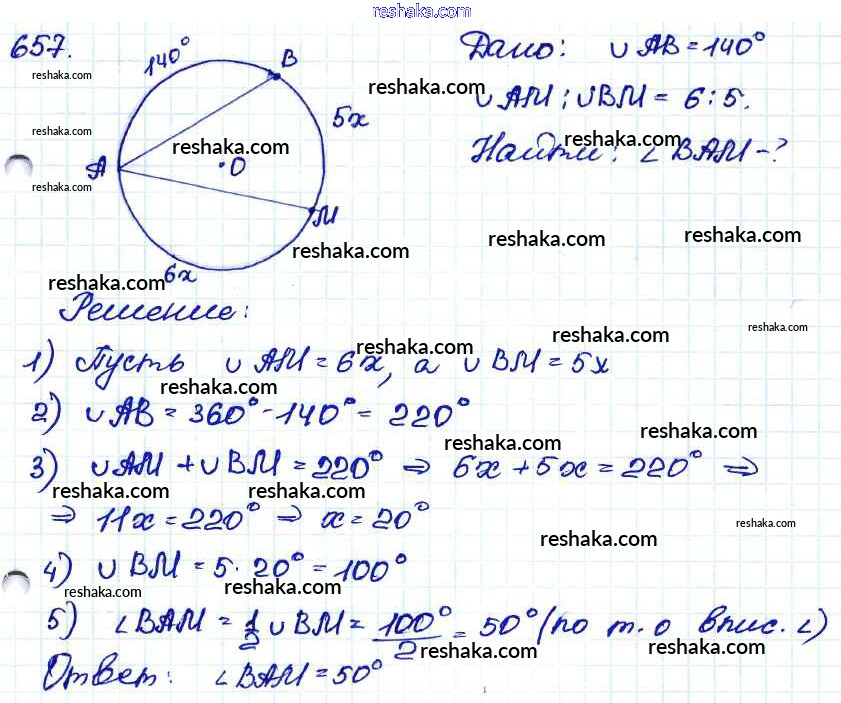 reshaka.com
657.
140°
B
Дано: ∪AB = 140°
reshaka.com
reshaka.com
5x
∪AM : ∪BM = 6 : 5.
reshaka.com
reshaka.com
reshaka.com
A
·O
Найти: ∠BAM - ?
reshaka.com
M
reshaka.com
reshaka.com
reshaka.com
6x
reshaka.com
Решение:
reshaka.com
reshaka.com
reshaka.com
1) Пусть ∪AM = 6x, а ∪BM = 5x
reshaka.com
2) ∪AB = 360° - 140° = 220°
reshaka.com
reshaka.com
3) ∪AM + ∪BM = 220° ⇒ 6x + 5x = 220° ⇒
reshaka.com
reshaka.com
⇒ 11x = 220° ⇒ x = 20°
reshaka.com
reshaka.com
4) ∪BM = 5 · 20° = 100°
reshaka.com
reshaka.com
5) ∠BAM = 1/2 ∪BM = 100°/2 = 50° (по т. о впис. ∠)
reshaka.com
reshaka.com
reshaka.com
Ответ: ∠BAM = 50°